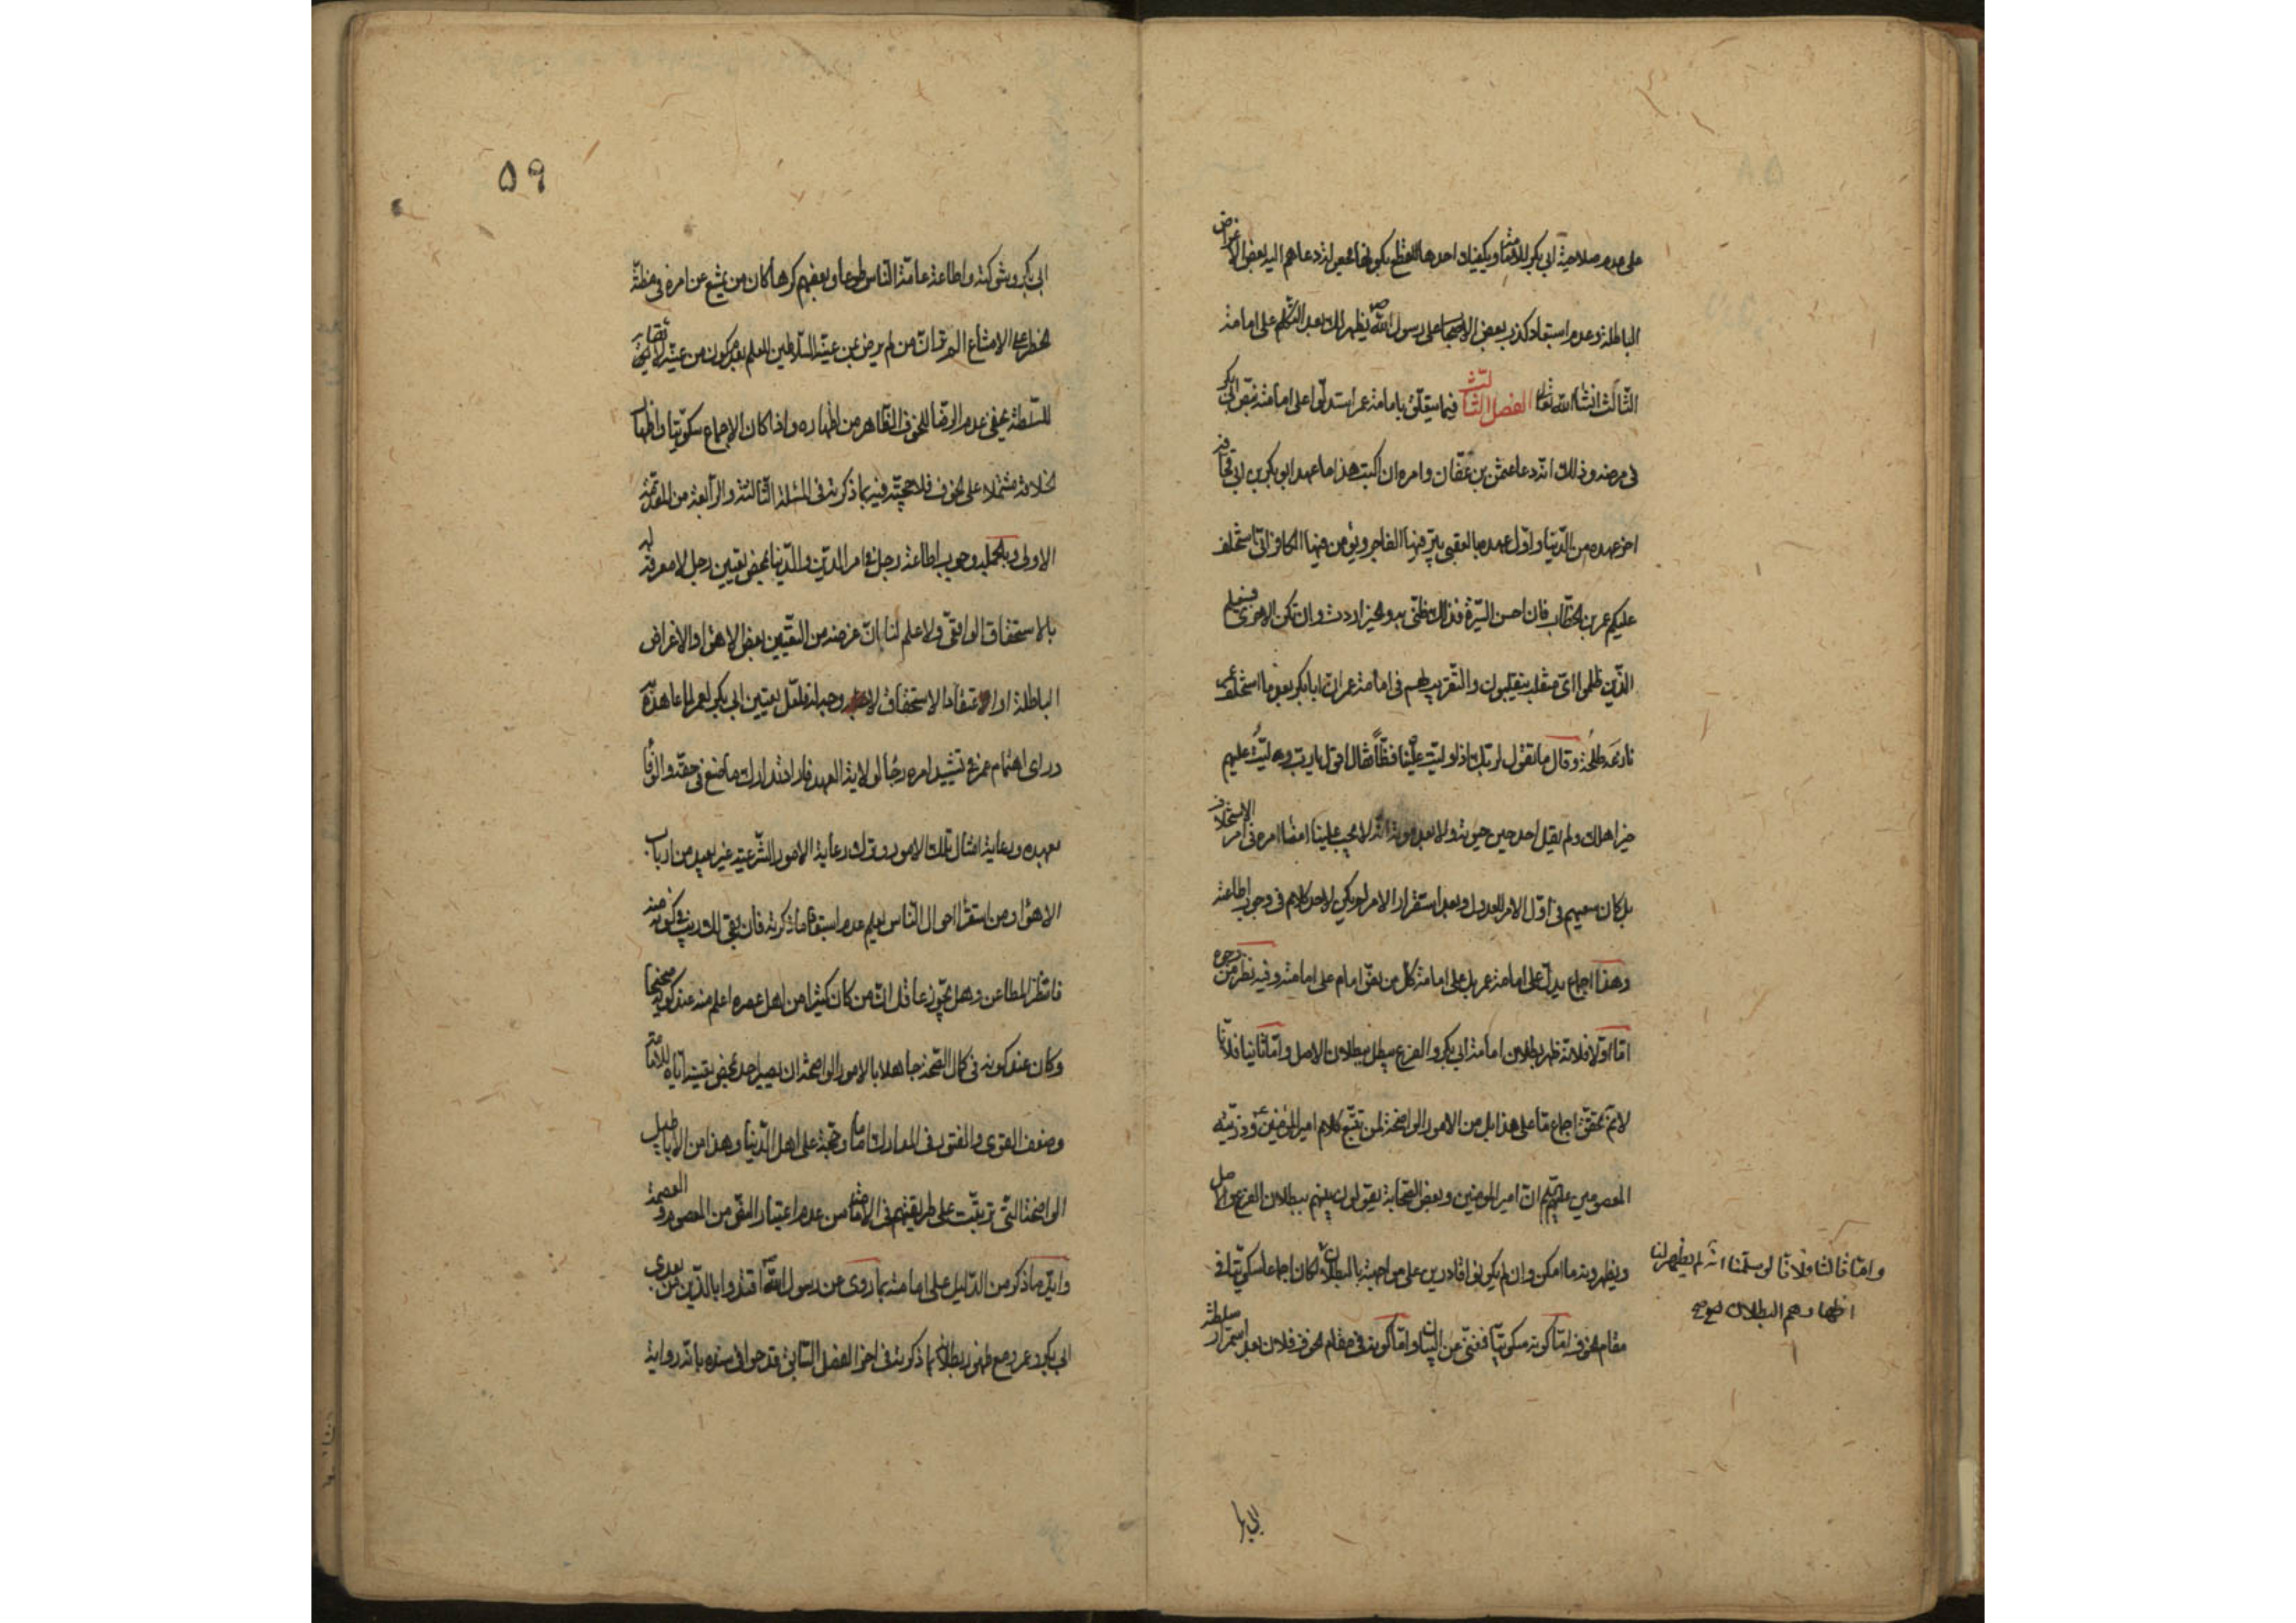 على عدم صلاحية ابي بكر للامامة ويكفيك احدها للقطع بكونها لمحض ارادة دعاهم اليه بعض الاغراض
الباطلة وعدم استبعاد كذب بعض الاصحاب على رسول الله ص يظهر لك بعد التكلم على امامة
الثالث انشاء الله تعالى الفصل الثالث فيما يتعلق بامامة عمر استدلوا على امامته بنص ابي بكر
في مرضه وذلك انه دعا عثمن بن عفان وامره ان اكتب هذا ما عهد ابو بكر بن ابي قحافة
اخر عهده من الدنيا واول عهده بالعقبى يبر فيها الفاجر ويؤمن فيها الكافر اني استخلف
عليكم عمر بن الخطاب فان احسن السيرة فذاك ظني به والخير اردت وان تكن الاخرى فسيعلم
الذين ظلموا اي منقلب ينقلبون والتقريب لهم في امامة عمر ان ابا بكر بعد ما استخلف عمر
نازعه طلحة وقال ما تقول لربك اذا وليت علينا فظا فقال اقول يا رب وليت عليهم
خير اهلك ولم يقل احد حين حيوته ولا بعد موته انه لا يجب علينا امضاء امره في امر الاستخلاف
بل كان سعيهم في اول الامر للعدول وبعد استقرار الامر لم يكن لاحد كلام في وجوب اطاعته
وهذا اجماع يدل على امامة عمر بل على امامة كل من نص امام على امامته وفيه نظر من وجوه
اما اولا فلانه ظهر بطلان امامة ابي بكر والفرع يبطل ببطلان الاصل واما ثانيا فلانا
لا نم تحقق اجماع ما على هذا بل من الامور الواضحة لمن تتبع كلام امير المؤمنين ع وذريته
المعصومين عليهم ان امير المؤمنين وبعض الصحابة يقولون بينهم ببطلان الفرع والاصل
ويظهرونه ما امكن وان لم يكونوا قادرين على مواجهته بالبطلان لكان اجماعا سكوتيا في
مقام الخوف اما كونه سكوتيا فغني عن البيان واما كونه في مقام الخوف فلان بعد استمرار سلطنة
واما ثالثا فلانا لو سلمنا انه لم يظهر لنا
اظهارهم البطلان صح
ابي بكر
٥٩
ابي بكر وشوكته واطاعة عامة الناس طوعا وبعضهم كرها كان من يمتنع عن امره في مظنة
الخطر على الامتناع الم تر ان من لم يرض عن عيّنه السلاطين للعلم بعد كون من عيّنه لائقا
للسلطنة يخفي عدم الرضا للخوف الظاهر من اظهاره واذا كان الاجماع سكوتيا واظهار
الخلاف مشتملا على الخوف فلا حجية فيه بما ذكرته في المسئلة الثالثة والرابعة من المقدمة
الاولى وبالجملة وجوب اطاعة رجل في امر الدين والدنيا بمحض تعيين رجل لا معرفة له
بالاستحقاق الواقعي ولا علم لنا بان غرضه من التعيين بعض الاهواء والاغراض
الباطلة او اعتقاد الاستحقاق لا وجه له فلعل تعيين ابي بكر لعمر لما عاهده
وراى اهتمام عمر في تشييد امره رجاء لولاية العهد فاراد تدارك ما صنع في حقه والوفاء
بعهده ورعاية امثال تلك الامور وترك رعاية الامور الشرعية غير بعيد من ارباب
الاهواء ومن استقرأ احوال الناس يعلم عدم استبعاد ما ذكرته فان بقي لك ريب في كونه منه
فانتظر المطاعن وهل يجوز عاقل ان من كان كثيرا من اهل عصره اعلم منه عند كونه صحيحا
وكان عند كونه في كمال الصحة جاهلا بالامور الواضحة ان يصير احد بمحض تعيينه اياه للامامة
وضعف القوى والفتور في المدارك اماما وحجة على اهل الدنيا وهذا من الاباطيل
الواضحة التي ترتبت على طريقتهم في الامامة من عدم اعتبار النص من المعصوم والعصمة
واين ما ذكر من الدليل على امامته بما روى عن رسول الله ص اقتدوا بالذين من بعدي
ابي بكر وعمر ومع ظهور بطلانه بما ذكرته في اخر الفصل السابق قدحوا في سنده بانه رواية